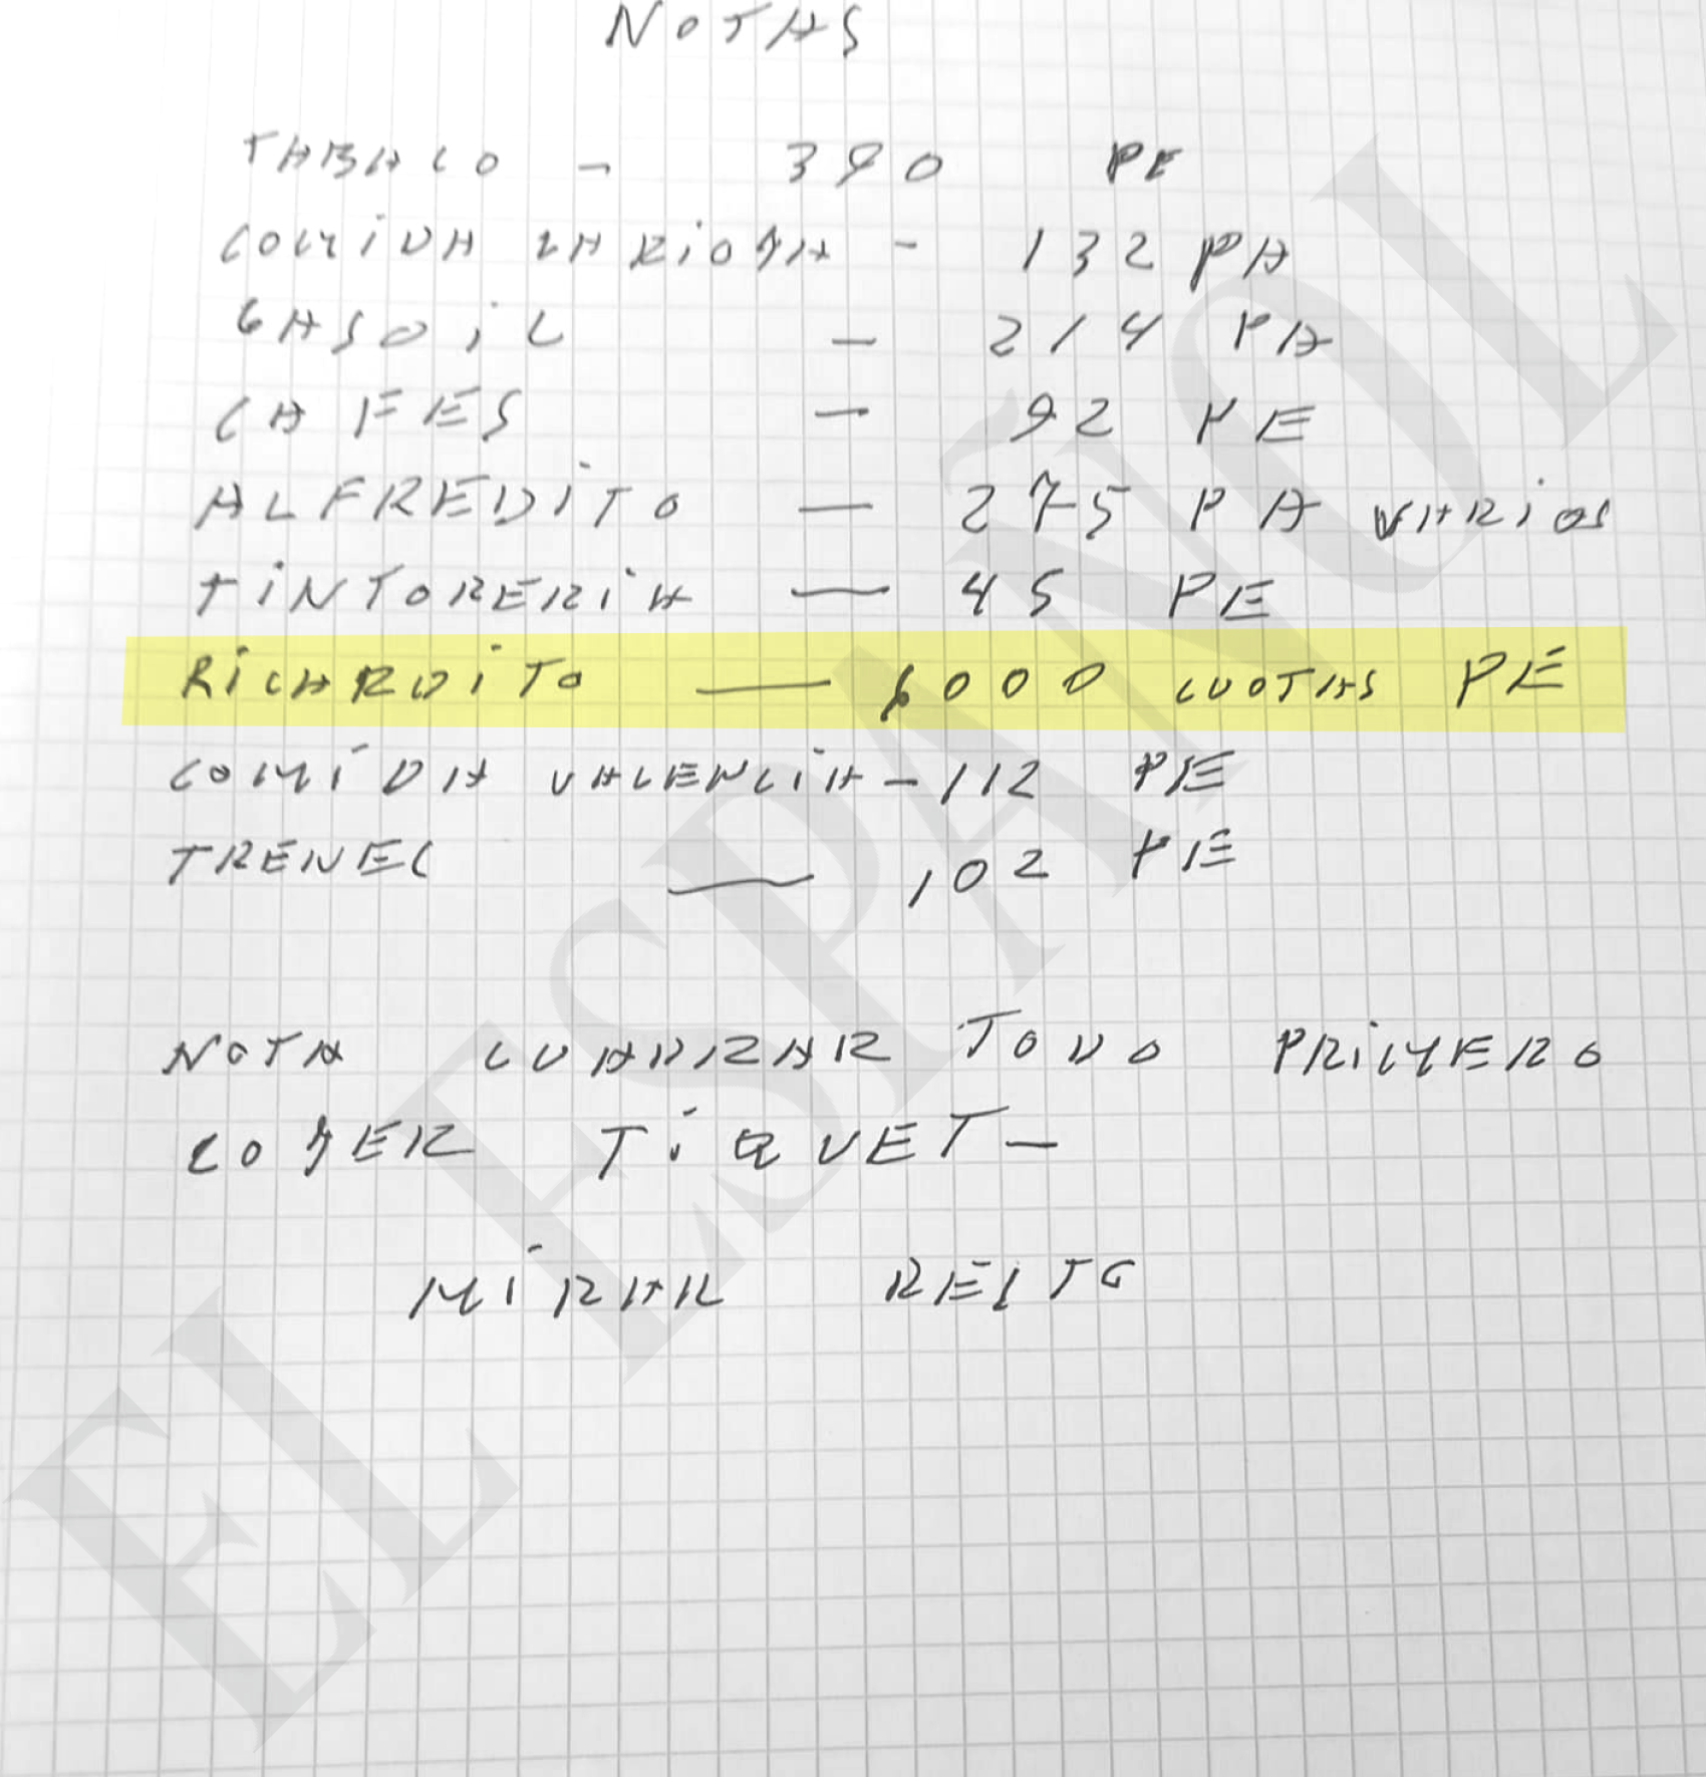 NOTAS
TABACO - 390 PE
COMIDA ZARIOJA - 132 PA
GASOIL - 214 PA
CAFES - 92 PE
ALFREDITO - 275 PA VARIOS
TINTORERIA - 45 PE
RICARDITO - 6000 CUOTAS PE
COMIDA VALENCIA - 112 PE
TRENEC - 102 PE
NOTA CUADRAR TODO PRIMERO
COJER TIQUET -
MIRAR RESTO
EL ESPAÑOL